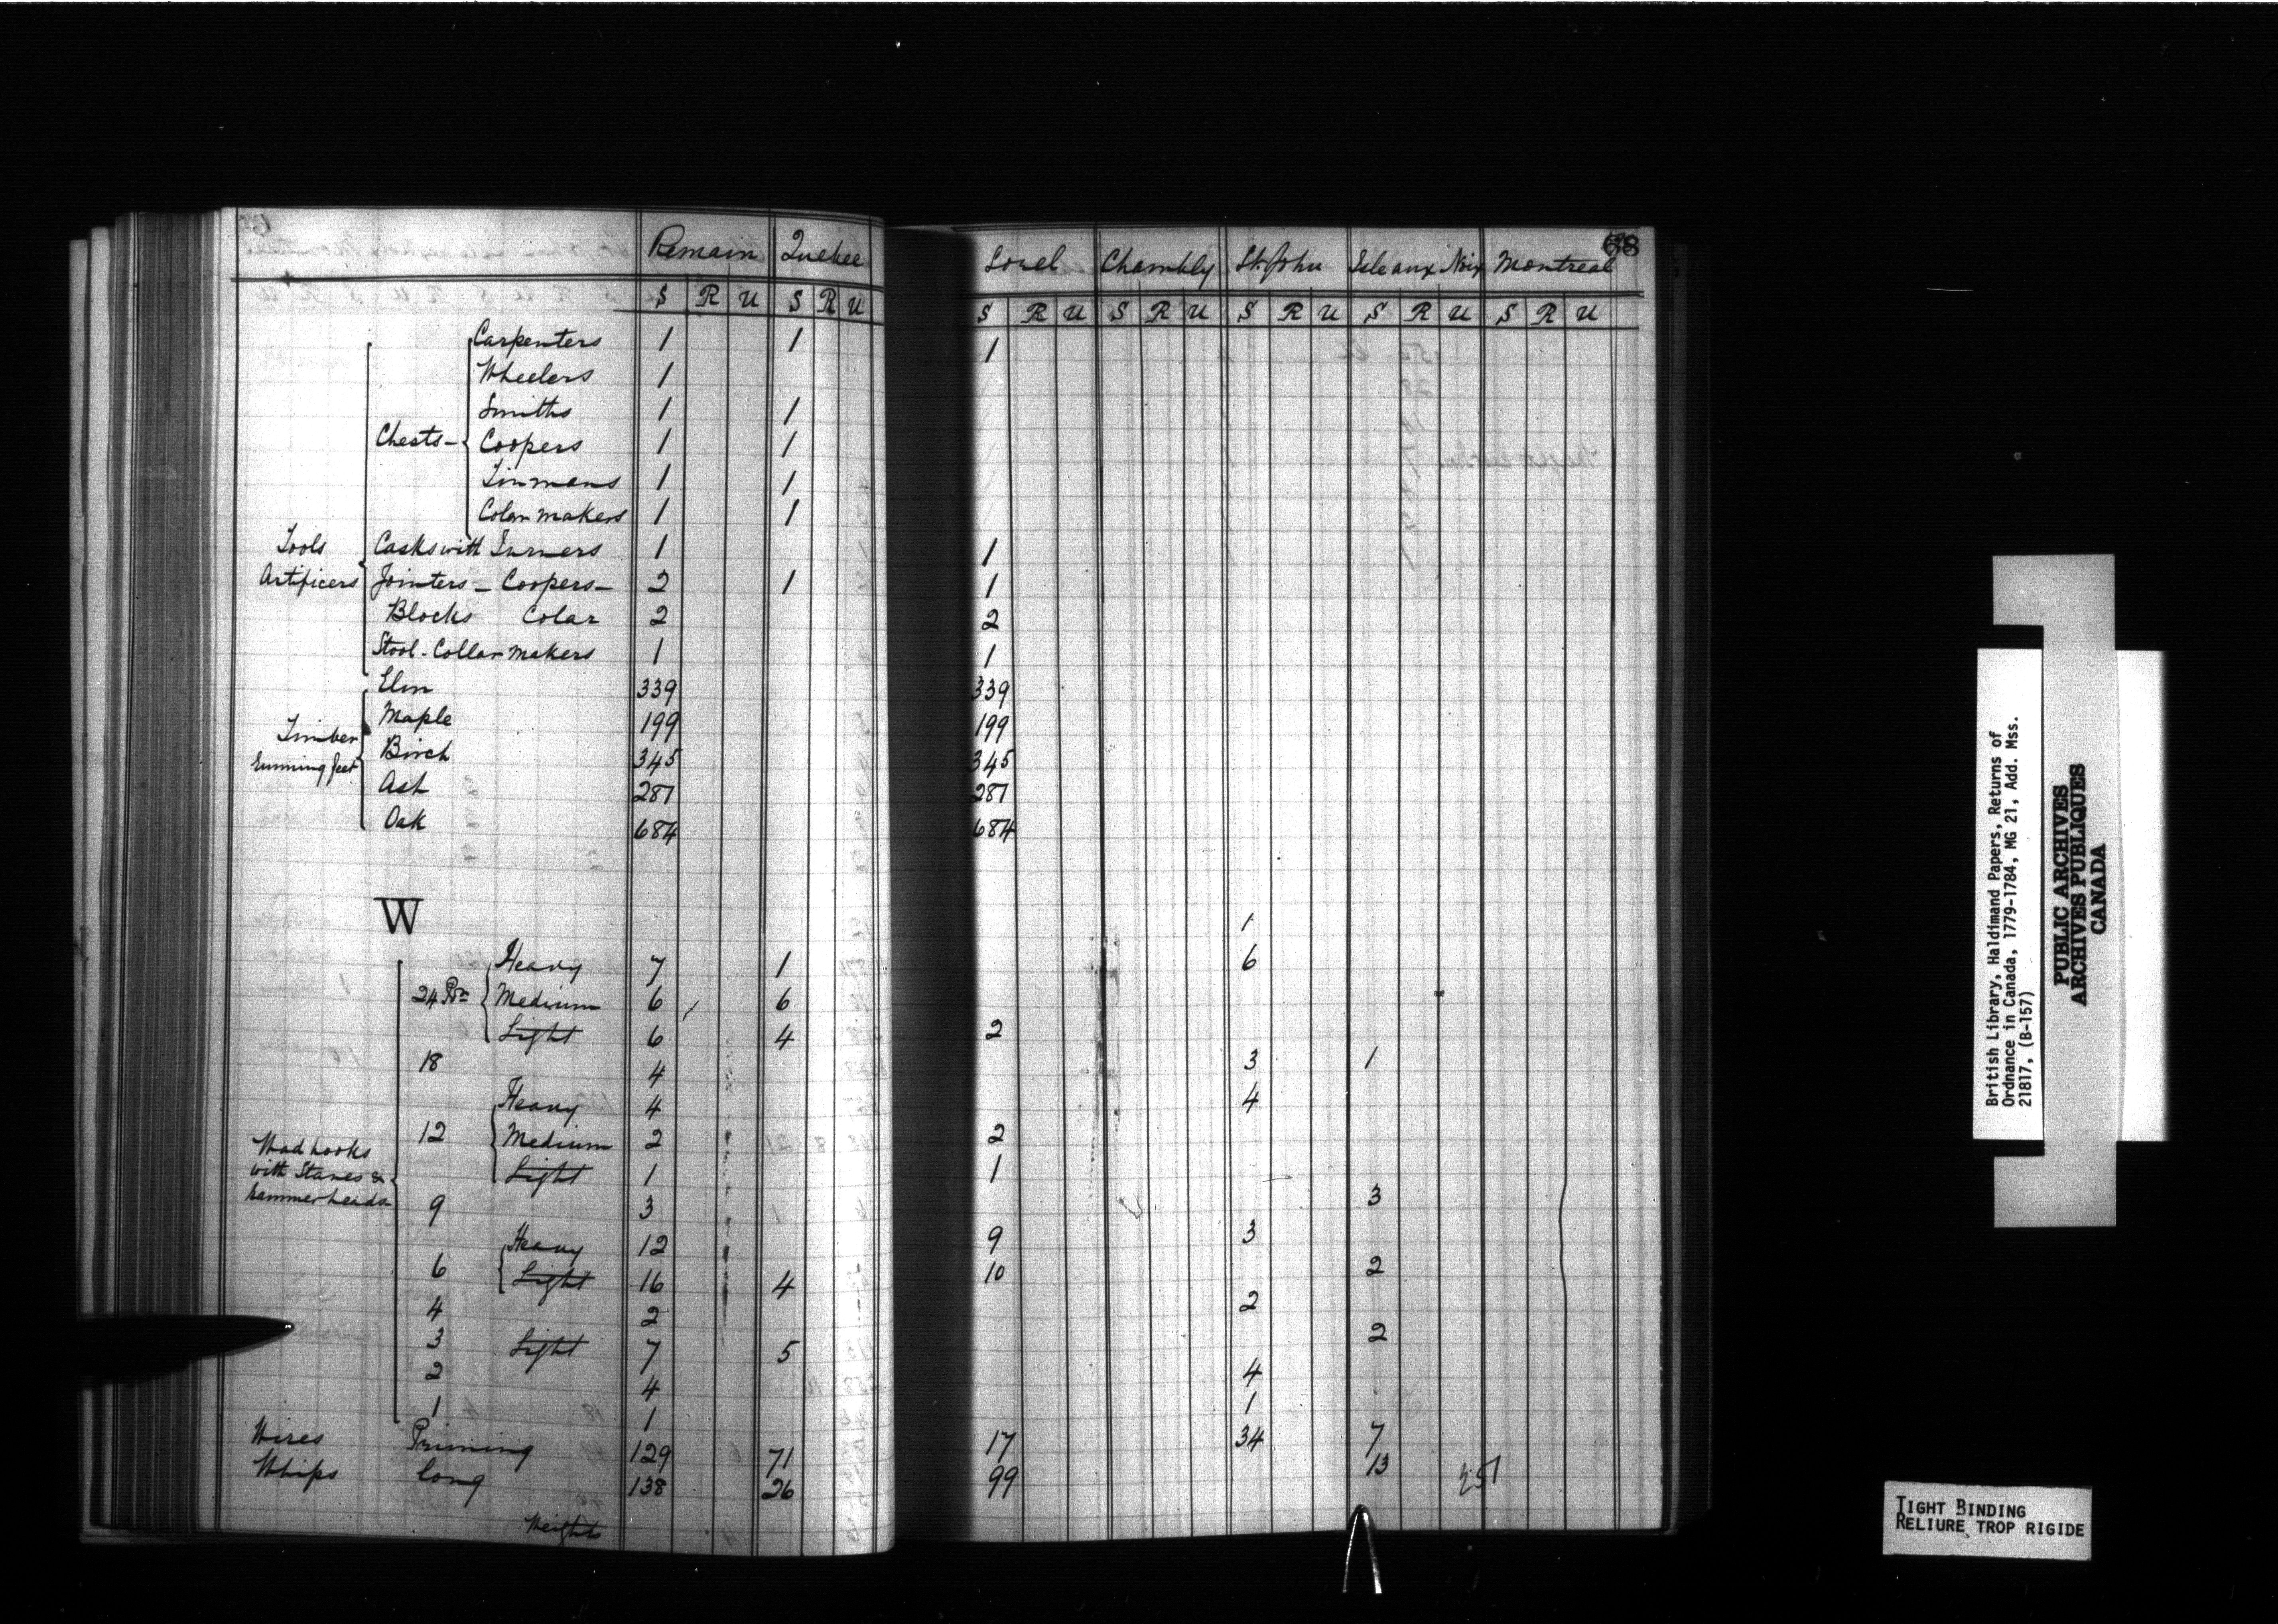 Remain Quebec
S R U S R U
Carpenters 1 1
Wheelers 1
Smiths 1 1
Chests - Coopers 1 1
Tinmans 1 1
Colar makers 1 1
Tools Casks with Turners 1
Artificers Jointers - Coopers - 2 1
Blocks Colar 2
Stool - Collar makers 1
Elm 339
Maple 199
Timber
Birch 345
running feet
Ash 287
Oak 684
W
Heavy 7 1
24 Pr Medium 6 6
Light 6 4
18 4
Heavy 4
12 Medium 2
Wad hooks
Light 1
with Staves &
hammerheads
9 3
Heavy 12
6
Light 16 4
4 2
3 Light 7 5
2 4
1 1
Wires Priming 129 71
Whips long 138 26
Weights
68
Sorel Chambly St. John Isle aux Noix Montreal
S R U S R U S R U S R U S R U
1
1
1
2
1
339
199
345
287
684
1
6
2
3 1
4
2
1
3
9 3
10 2
2
2
4
1
17 34 7
99 13
British Library, Haldimand Papers, Returns of
Ordnance in Canada, 1779-1784, MG 21, Add. Mss.
21817, (B-157)
PUBLIC ARCHIVES
ARCHIVES PUBLIQUES
CANADA
TIGHT BINDING
RELIURE TROP RIGIDE